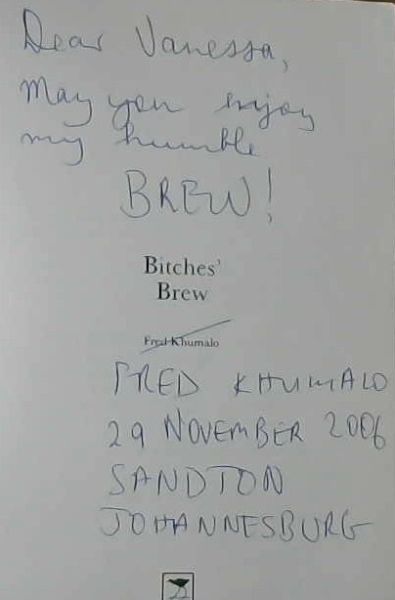 Dear Vanessa,
May you enjoy
my humble
BREW!
Bitches'
Brew
Fred Khumalo
FRED KHUMALO
29 NOVEMBER 2006
SANDTON
JOHANNESBURG